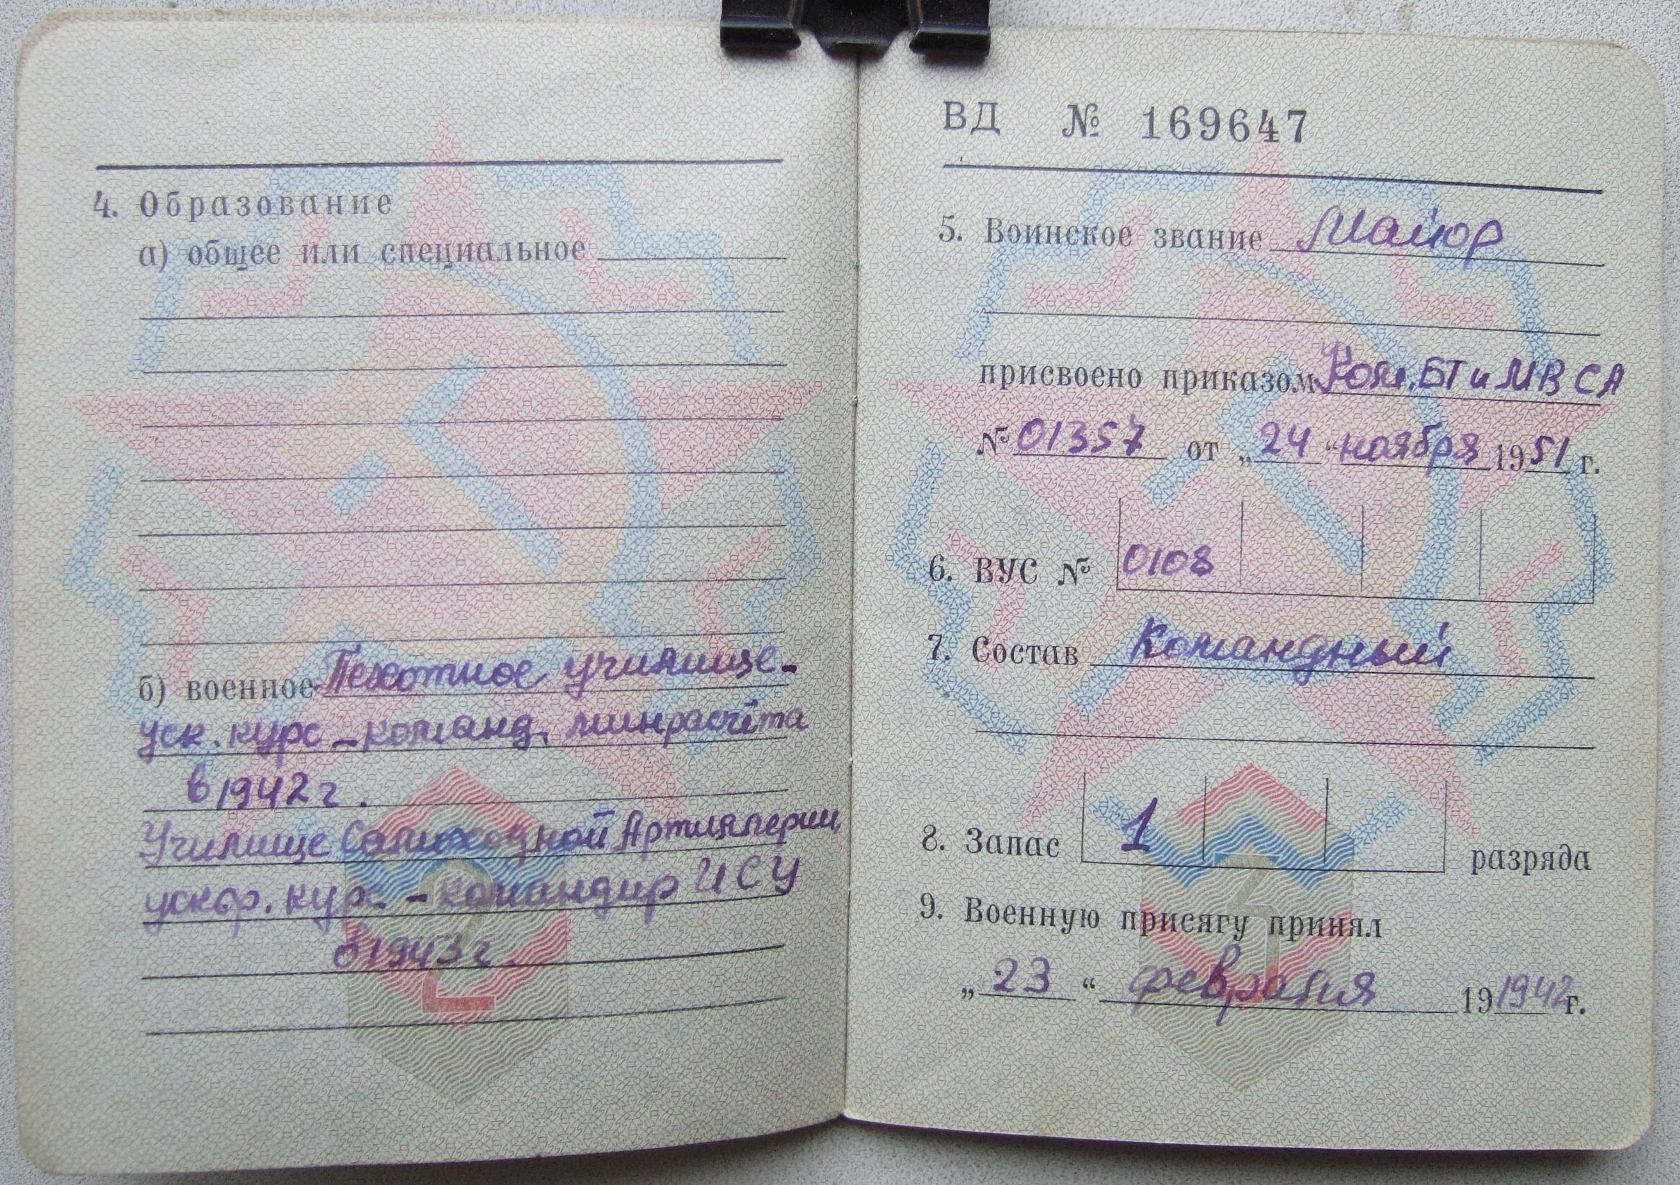 4. Образование
а) общее или специальное
б) военное Пехотное училище-
уск. курс - команд. минрасчёта
в 1942 г.
Училище Самоходной Артиллерии,
ускор. курс - командир ИСУ
в 1943 г.
ВД № 169647
5. Воинское звание Майор
присвоено приказом Ком. БТ и МВ СА
№ 01357 от „24“ ноября 1951 г.
6. ВУС № 0108
7. Состав Командный
8. Запас 1 разряда
9. Военную присягу принял
„23“ февраля 19 1942 г.